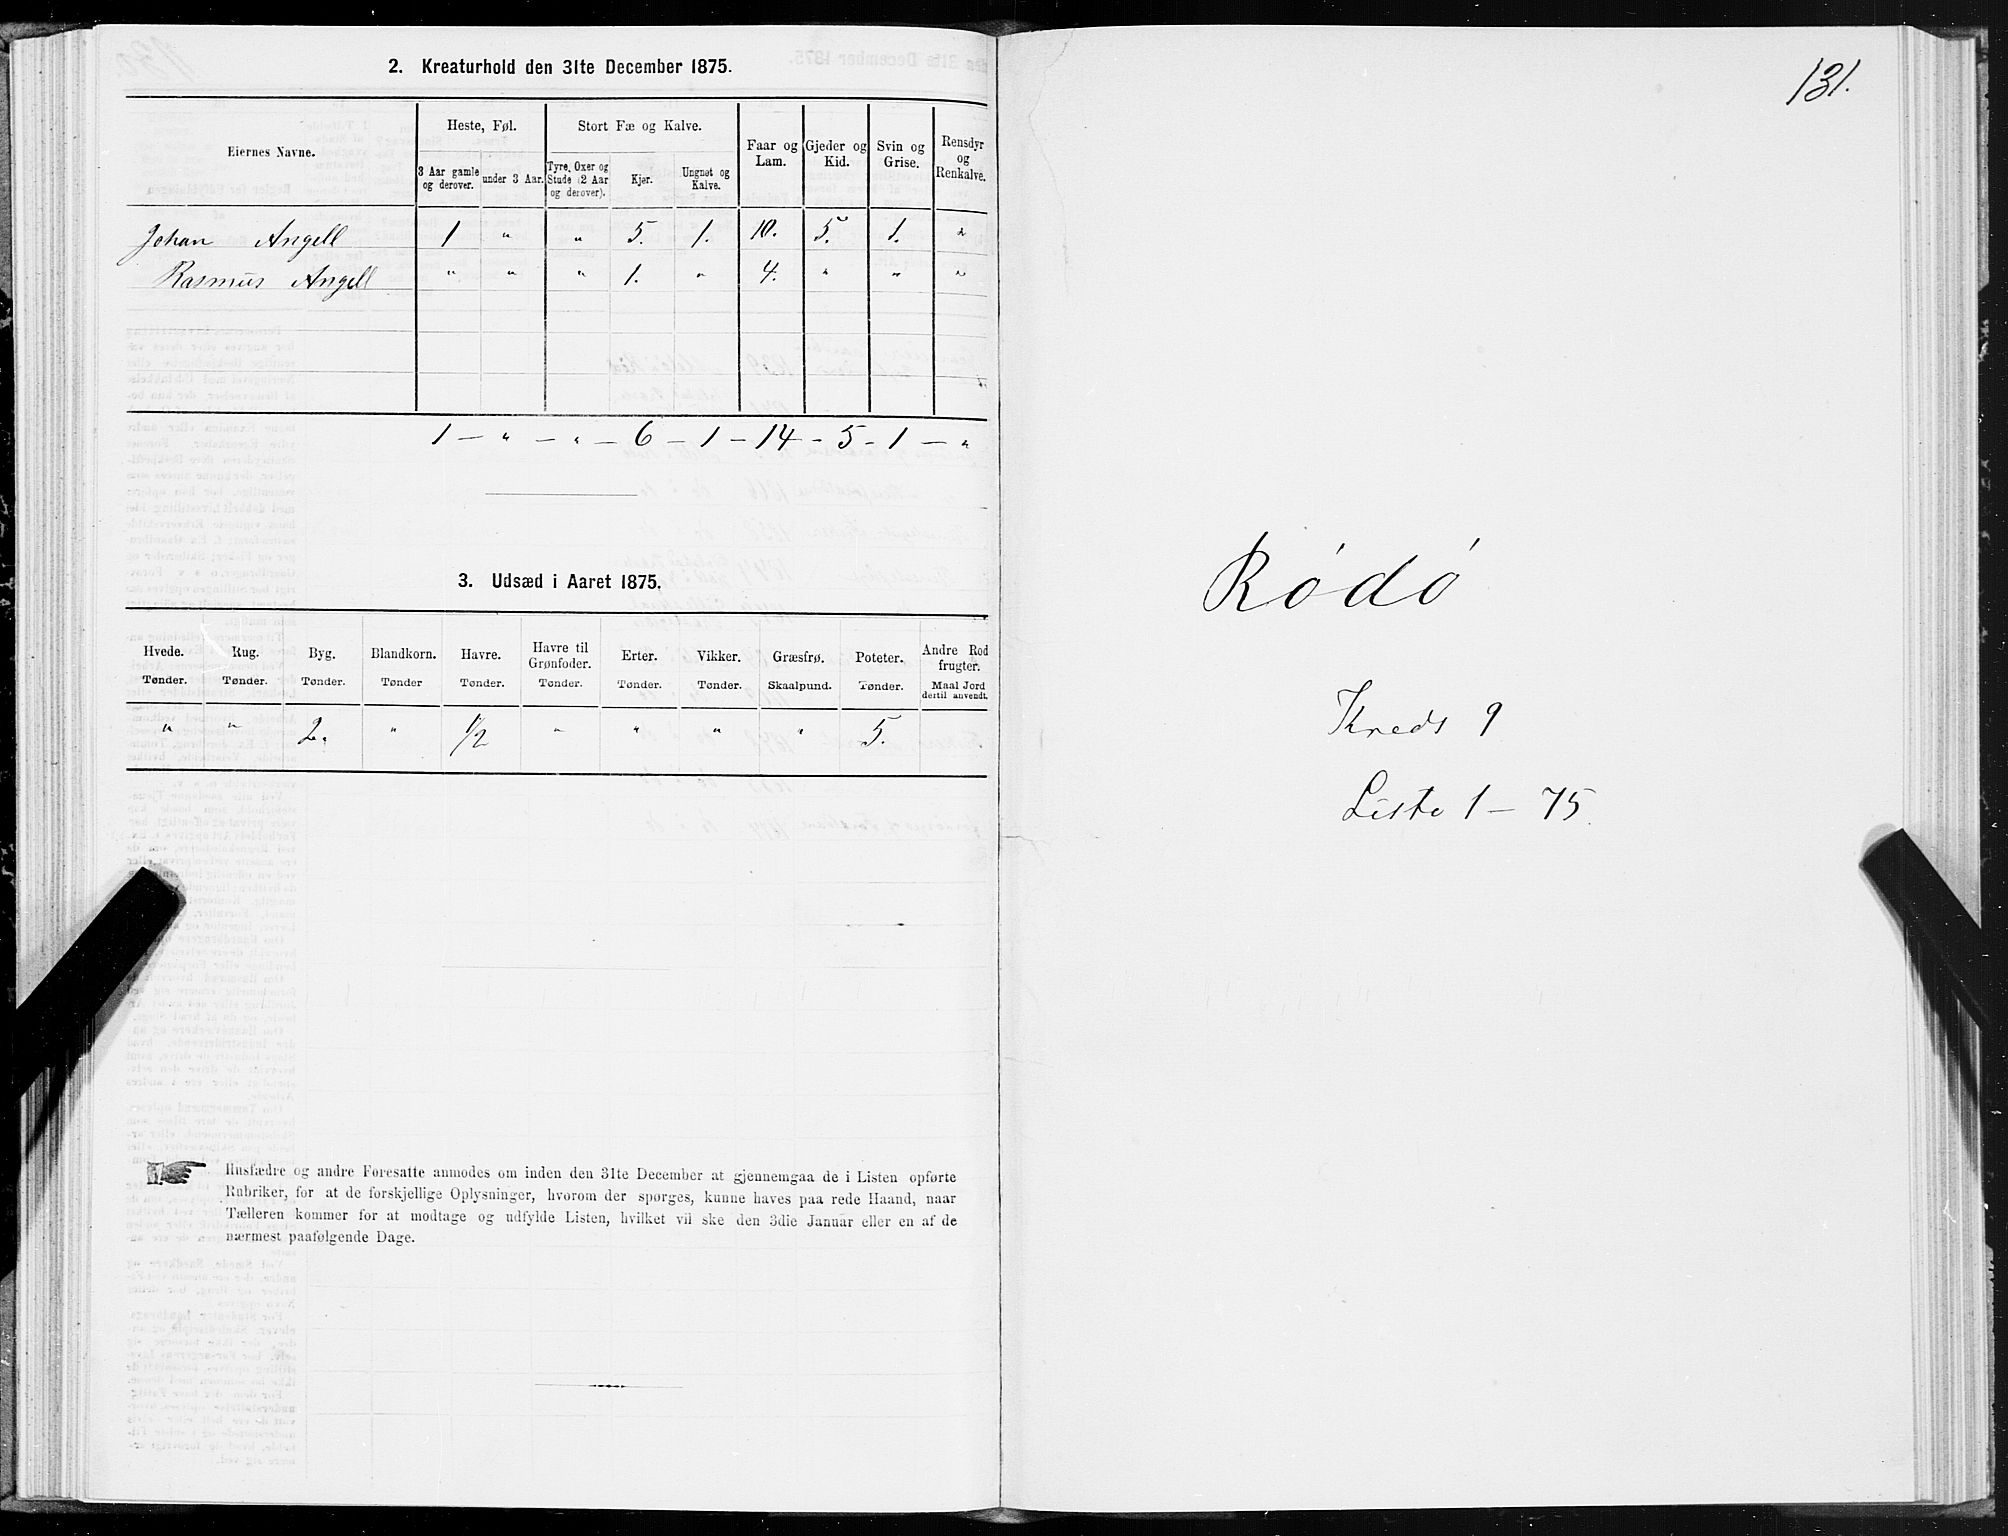 2. Kreaturhold den 31te December 1875.
Eiernes Navne.
Heste, Føl.
Stort Fæ og Kalve.
Faar og Lam.
Gjeder og Kid.
Svin og Grise.
Rensdyr og Renkalve.
3 Aar gamle og derover.
under 3 Aar.
Tyre, Oxer og Stude (2 Aar og derover).
Kjør.
Ungnøt og Kalve.
Johan Angell 1 " " 5. 1. 10. 5. 1. "
Rasmus Angell " " " 1. " 4. " " "
1 — " — " — 6 — 1 — 14 — 5 — 1 — "
3. Udsæd i Aaret 1875.
Hvede. Rug. Byg. Blandkorn. Havre. Havre til Grønfoder. Erter. Vikker. Græsfrø. Poteter. Andre Rodfrugter.
Tønder. Tønder. Tønder. Tønder Tønder. Tønder. Tønder. Tønder. Skaalpund. Tønder. Maal Jord dertil anvendt.
" " 2. " 1/2 " " " " 5.
Husfædre og andre Foresatte anmodes om inden den 31te December at gjennemgaa de i Listen opførte
Rubriker, for at de forskjellige Oplysninger, hvorom der spørges, kunne haves paa rede Haand, naar
Tælleren kommer for at modtage og udfylde Listen, hvilket vil ske den 3die Januar eller en af de
nærmest paafølgende Dage.
131.
Rødø
Kreds 9
Liste 1 — 75.